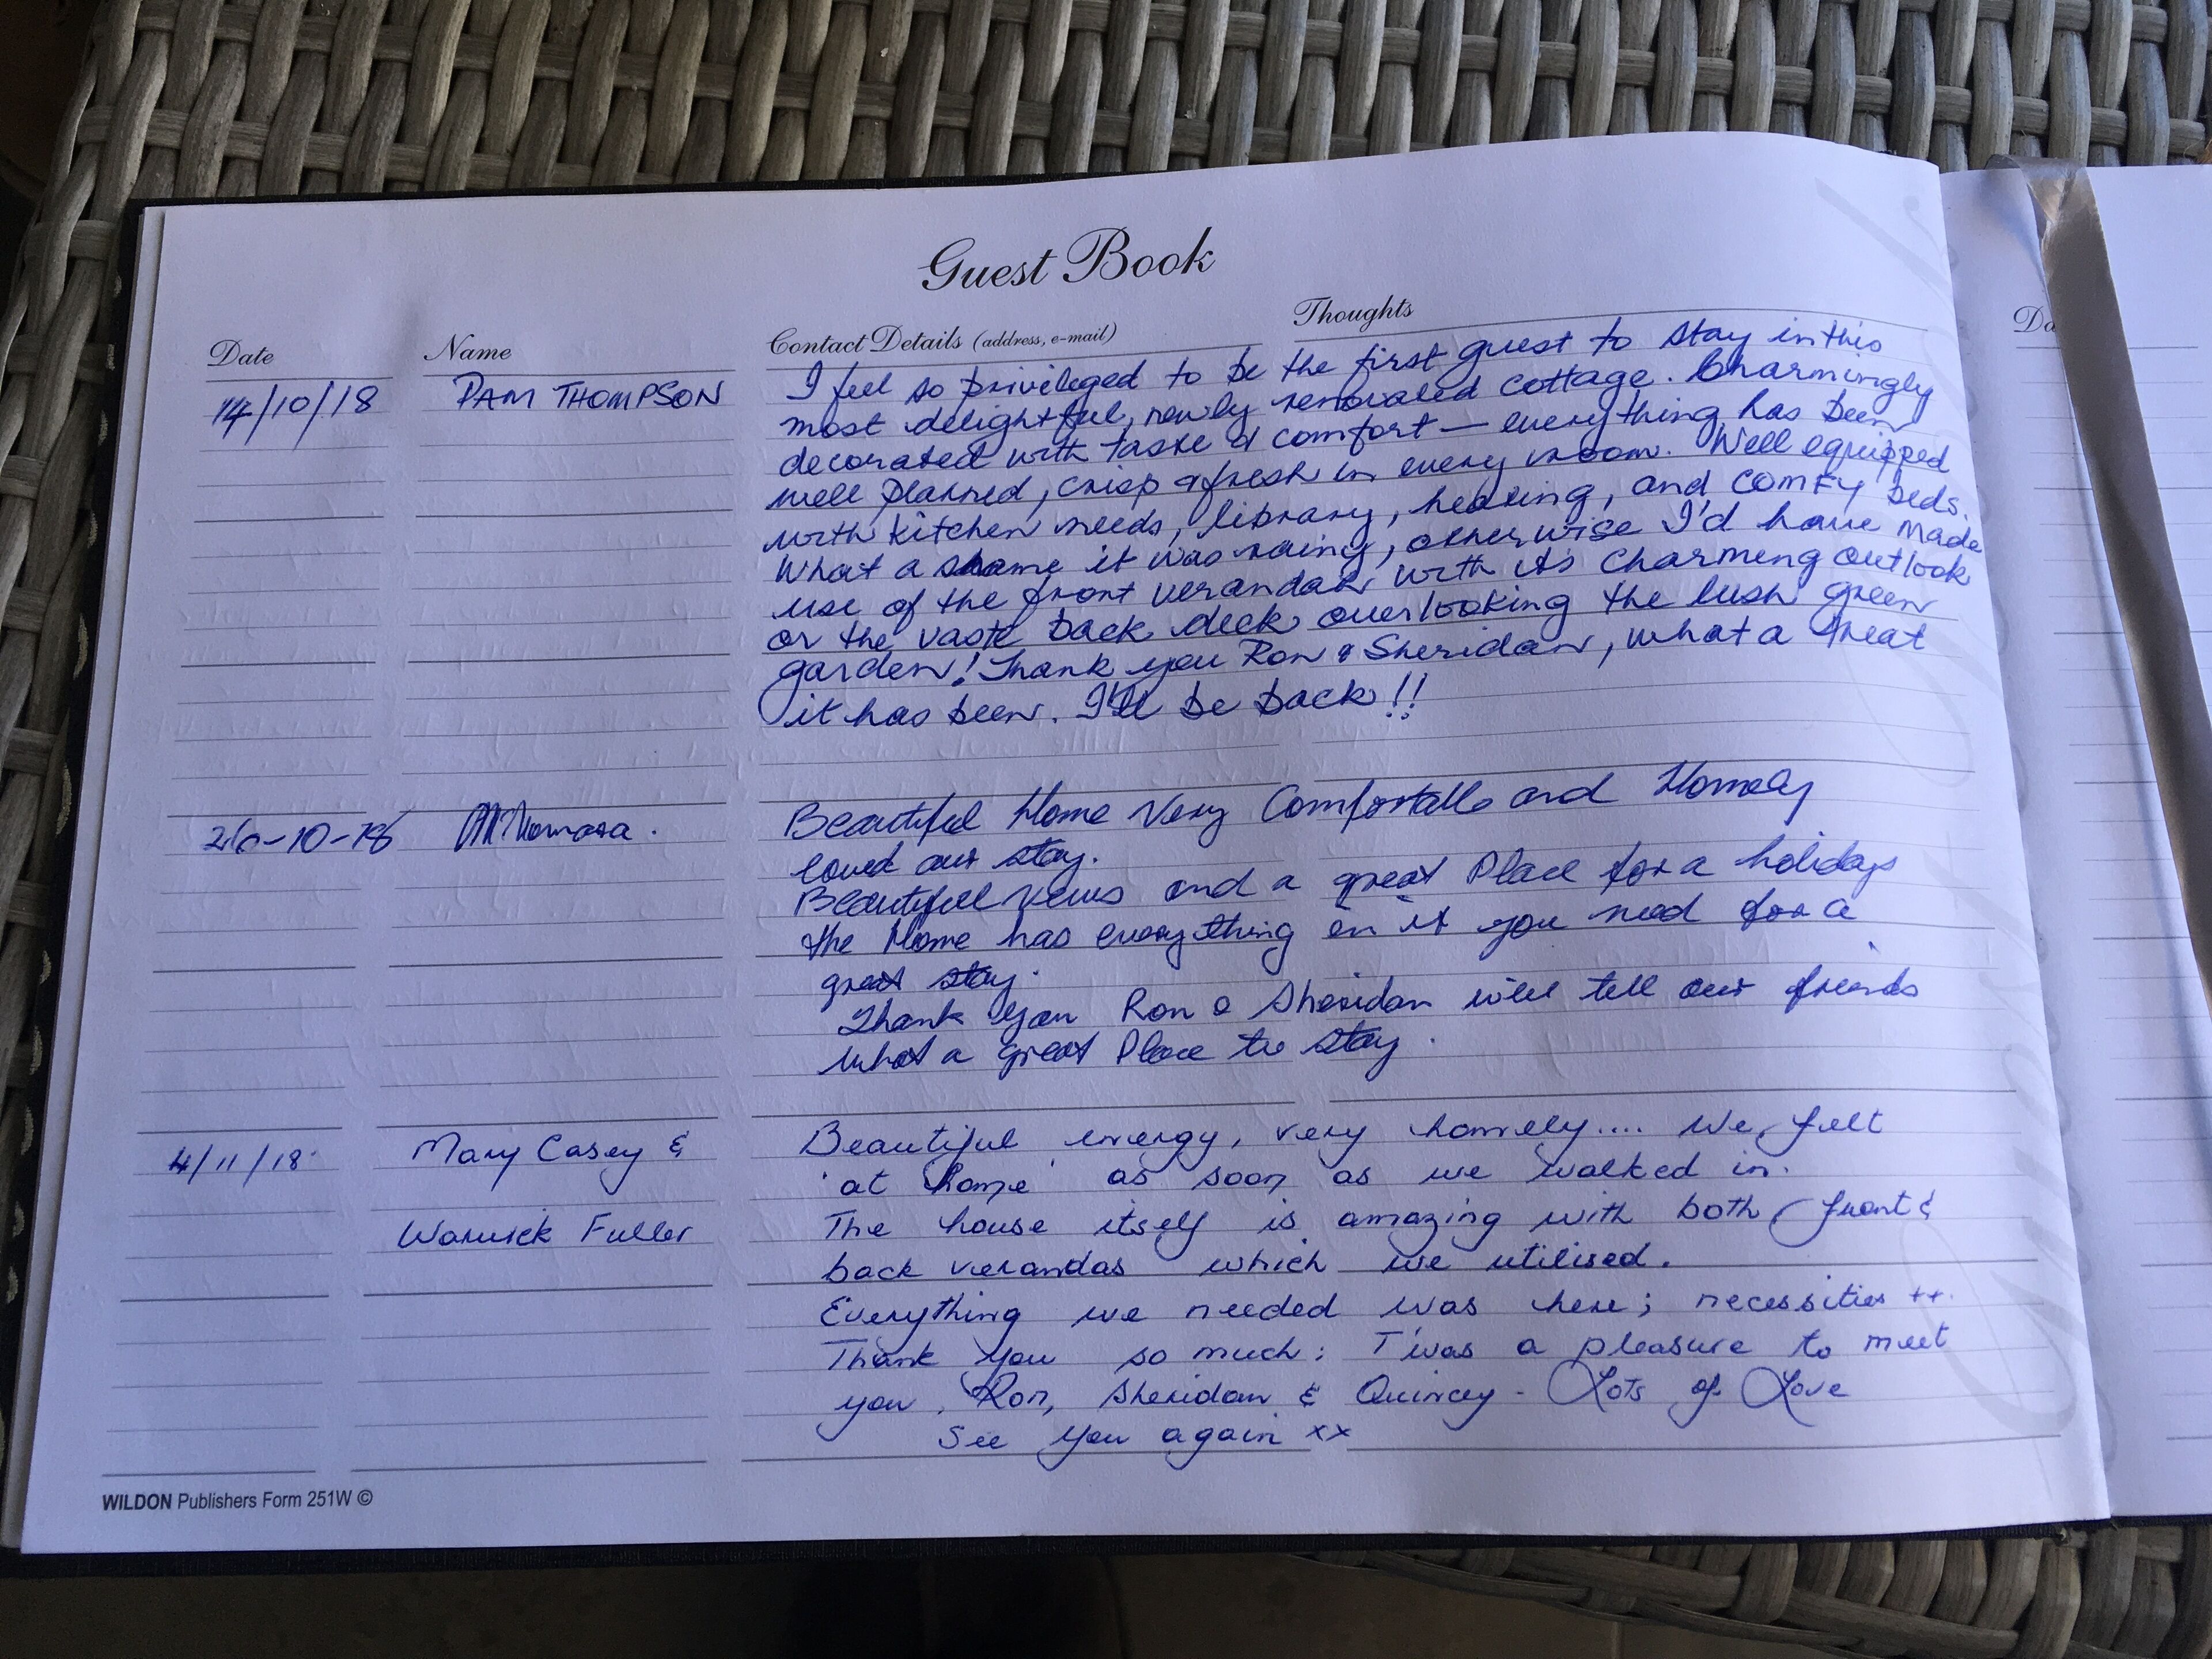 Guest Book
Date Name Contact Details (address, e-mail) Thoughts
14/10/18 PAM THOMPSON I feel so privileged to be the first guest to stay in this
most delightful, newly renovated cottage. Charmingly
decorated with taste & comfort — everything has been
well planned, crisp & fresh in every room. Well equipped
with kitchen needs, library, heating, and comfy beds.
What a shame it was rainig, otherwise I'd have made
use of the front verandah with its charming outlook
or the vast back deck overlooking the lush green
garden! Thank you Ron & Sheridan, what a treat
it has been. I'll be back!!
26-10-18 Beautiful Home Very Comfortable and Homely
loved our stay.
Beautiful Views and a great Place for a holiday
the Home has everything in it you need for a
great stay.
Thank You Ron & Sheridan will tell our friends
what a great Place to stay.
4/11/18 Mary Casey & Beautiful energy, very homely.... We felt
'at home' as soon as we walked in.
Warwick Fuller The house itself is amazing with both front &
back verandas which we utilised.
Everything we needed was here; necessities ++.
Thank you so much: T'was a pleasure to meet
you, Ron, Sheridan & Quincey - Lots of Love
See you again xx
WILDON Publishers Form 251W ©